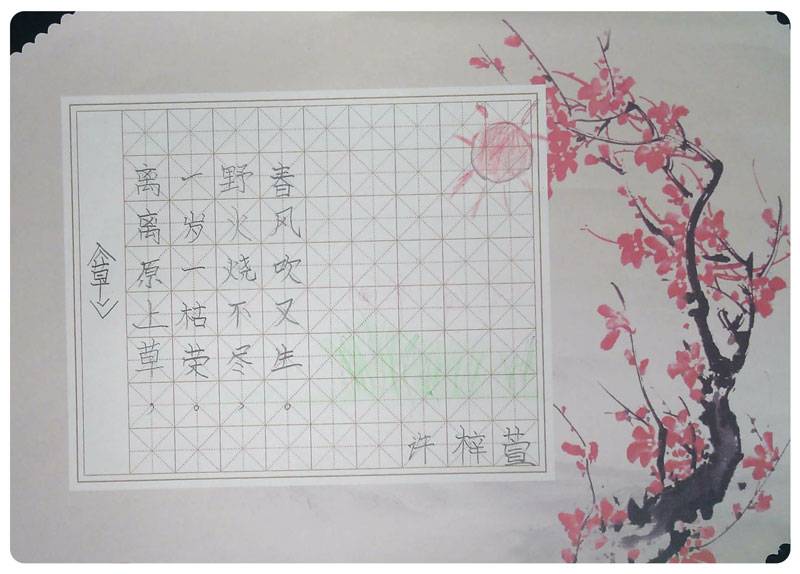 《草》
离离原上草，
一岁一枯荣。
野火烧不尽，
春风吹又生。
许梓萱